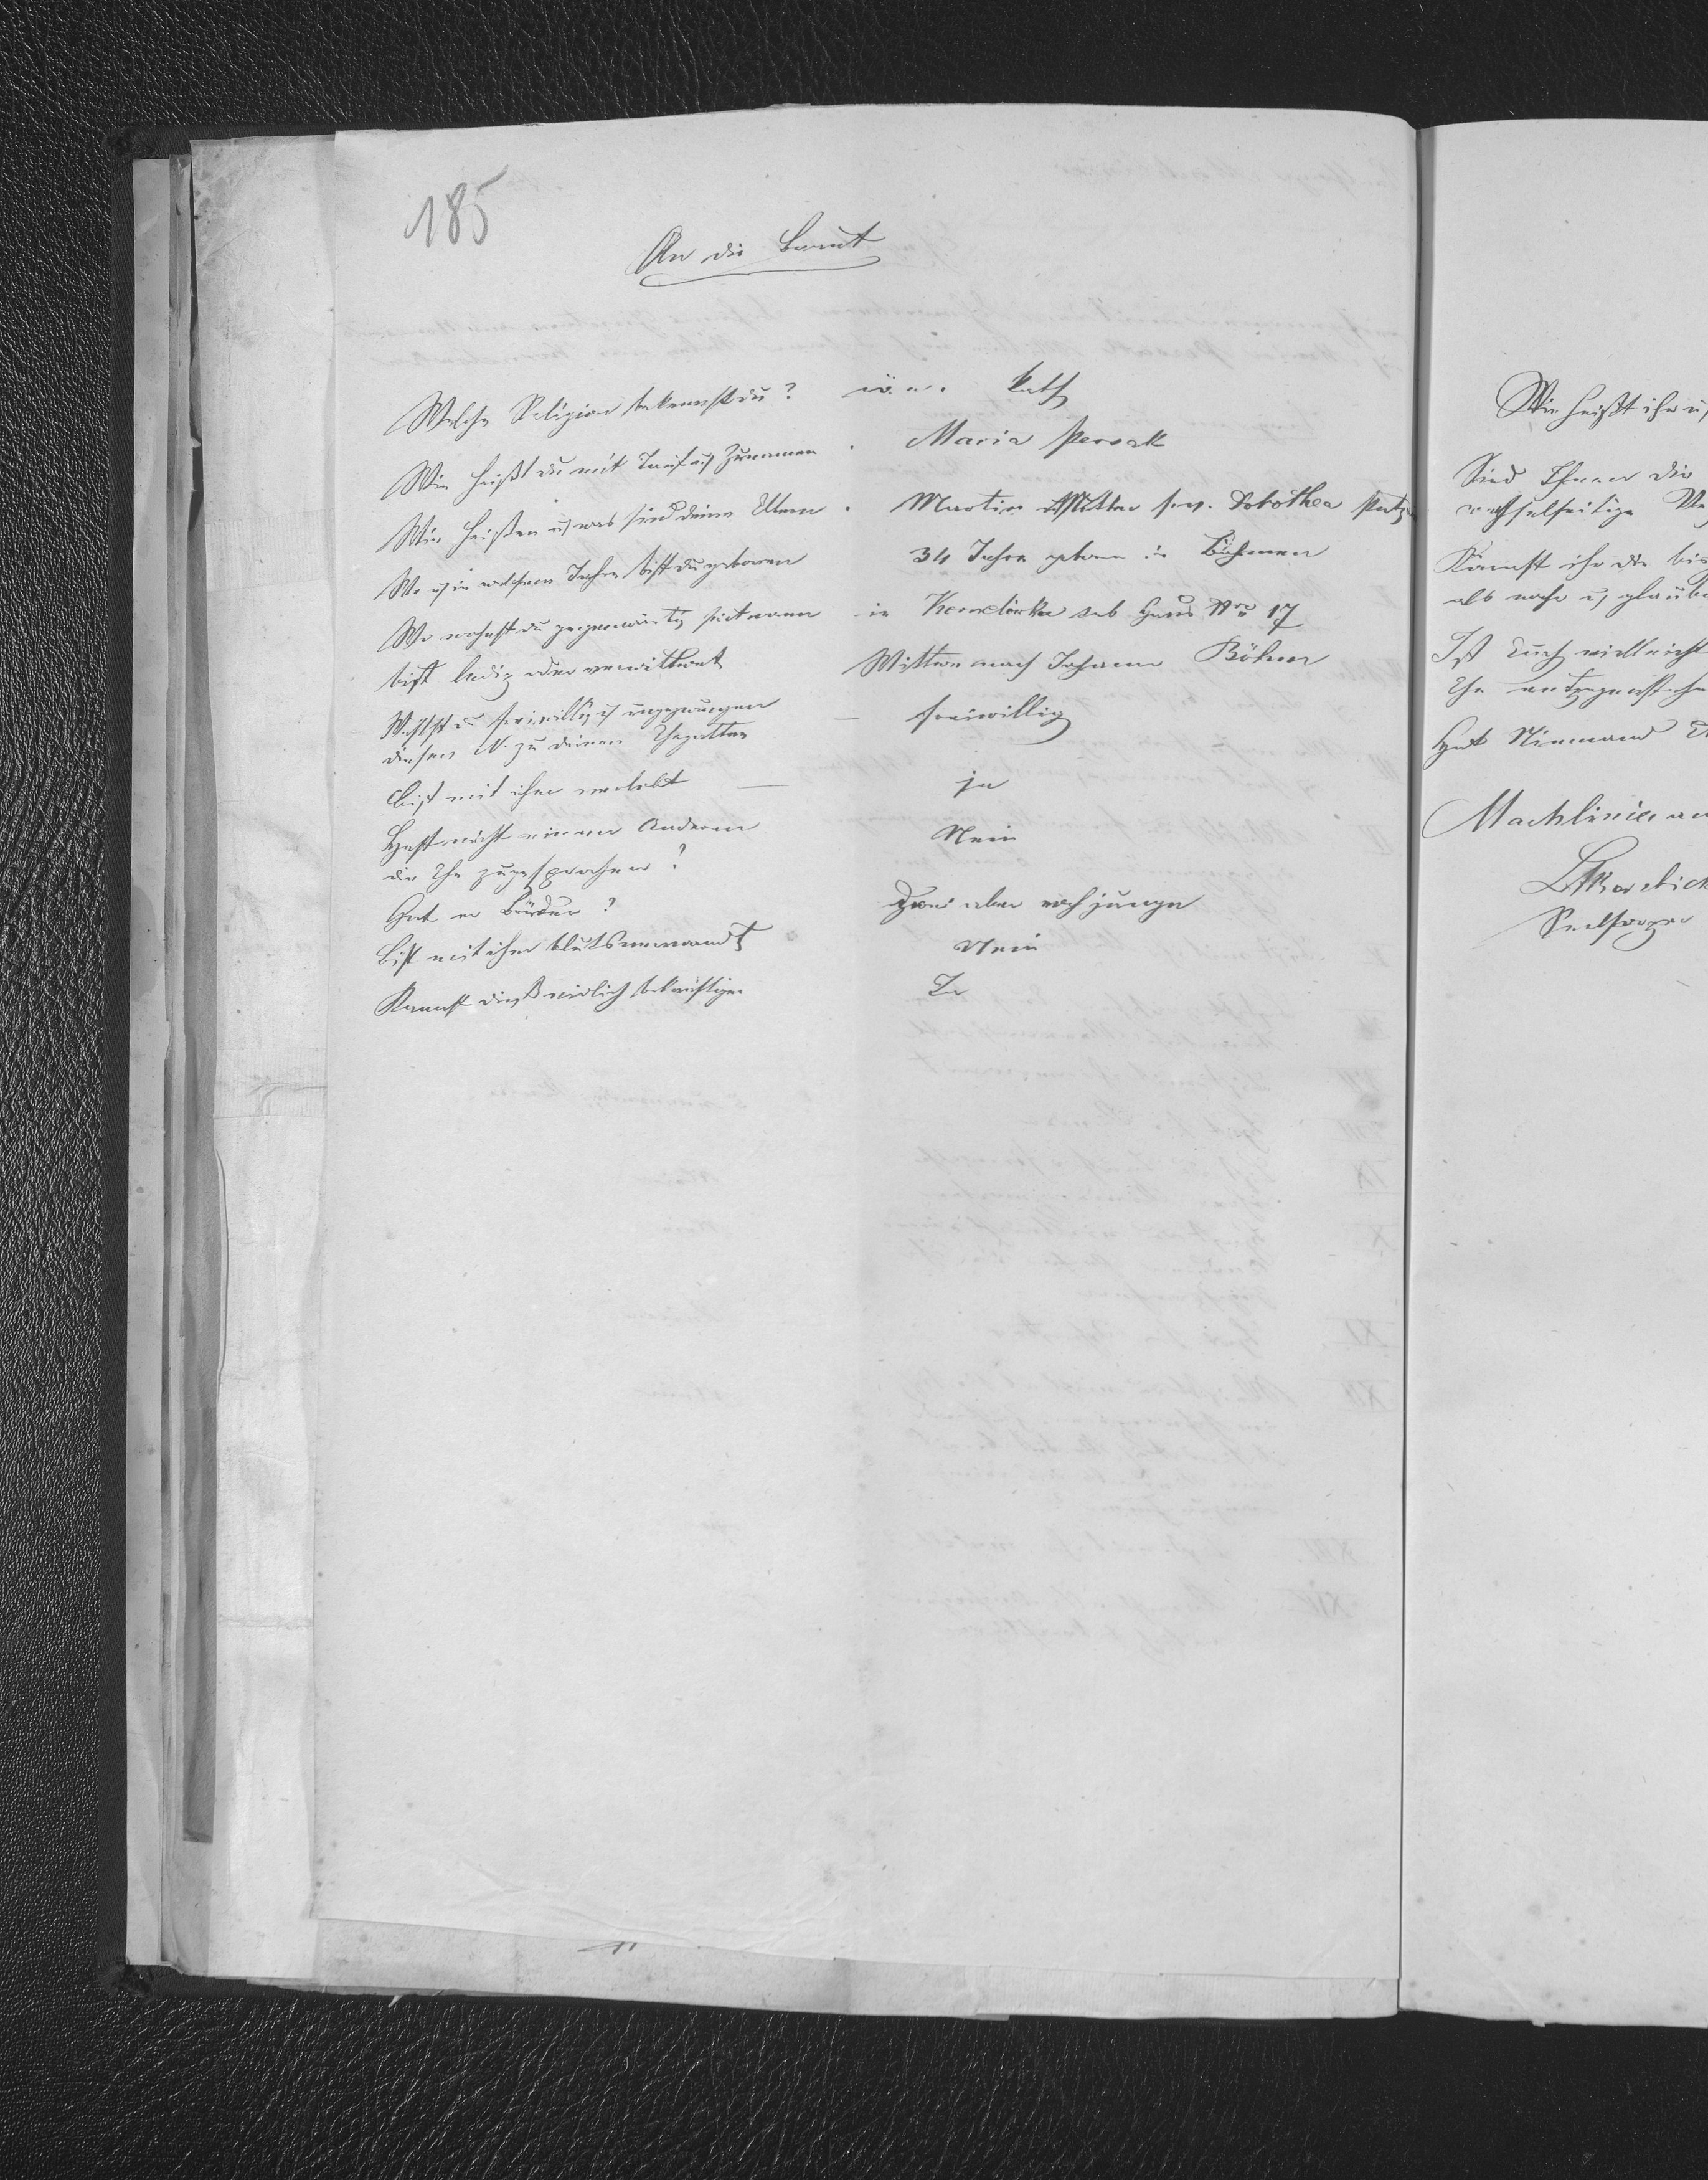 185
An die Braut
Welche Religion bekennst du? röm. kath
Wie heißt du mit Tauf u Zunamen . Maria Perwak
Wie heißen u was sind deine Eltern . Martin Mutter Dorothea
Wo u in welchem Jahre bist du geboren 34 Jahre geboren in Böhmen
Wo wohnst du gegenwärtig seit wann in sub Haus Nro 17
bist ledig oder verwittwet Wittwe nach Johann Böhm
Wählst du freiwillig u ungezwungen
diesen N. zu deinem Ehegatten — freiwillig
bist mit ihm verlobt — ja
Hast nicht einem Anderen
die Ehe zugesprochen? Nein
Hat er Brüder? Zwei aber noch junge
bist mit ihm blutsverwandt Nein
Kannst dieß eidlich bekräftigen Ja
Wie heißt ihr u
Sind Ihnen die
wechselseitige
Könnt ihr die bis
als wahr u
Ist Euch vielleicht
Ehe entgegenstehe
Hat Niemand
Machliniec am
Seelsorger